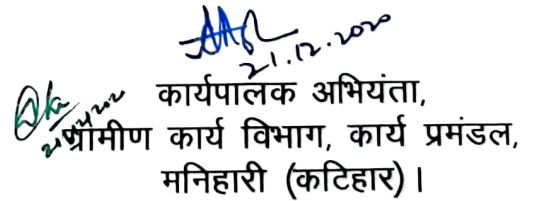 21.12.2020
कार्यपालक अभियंता,
ग्रामीण कार्य विभाग, कार्य प्रमंडल,
मनिहारी (कटिहार)।